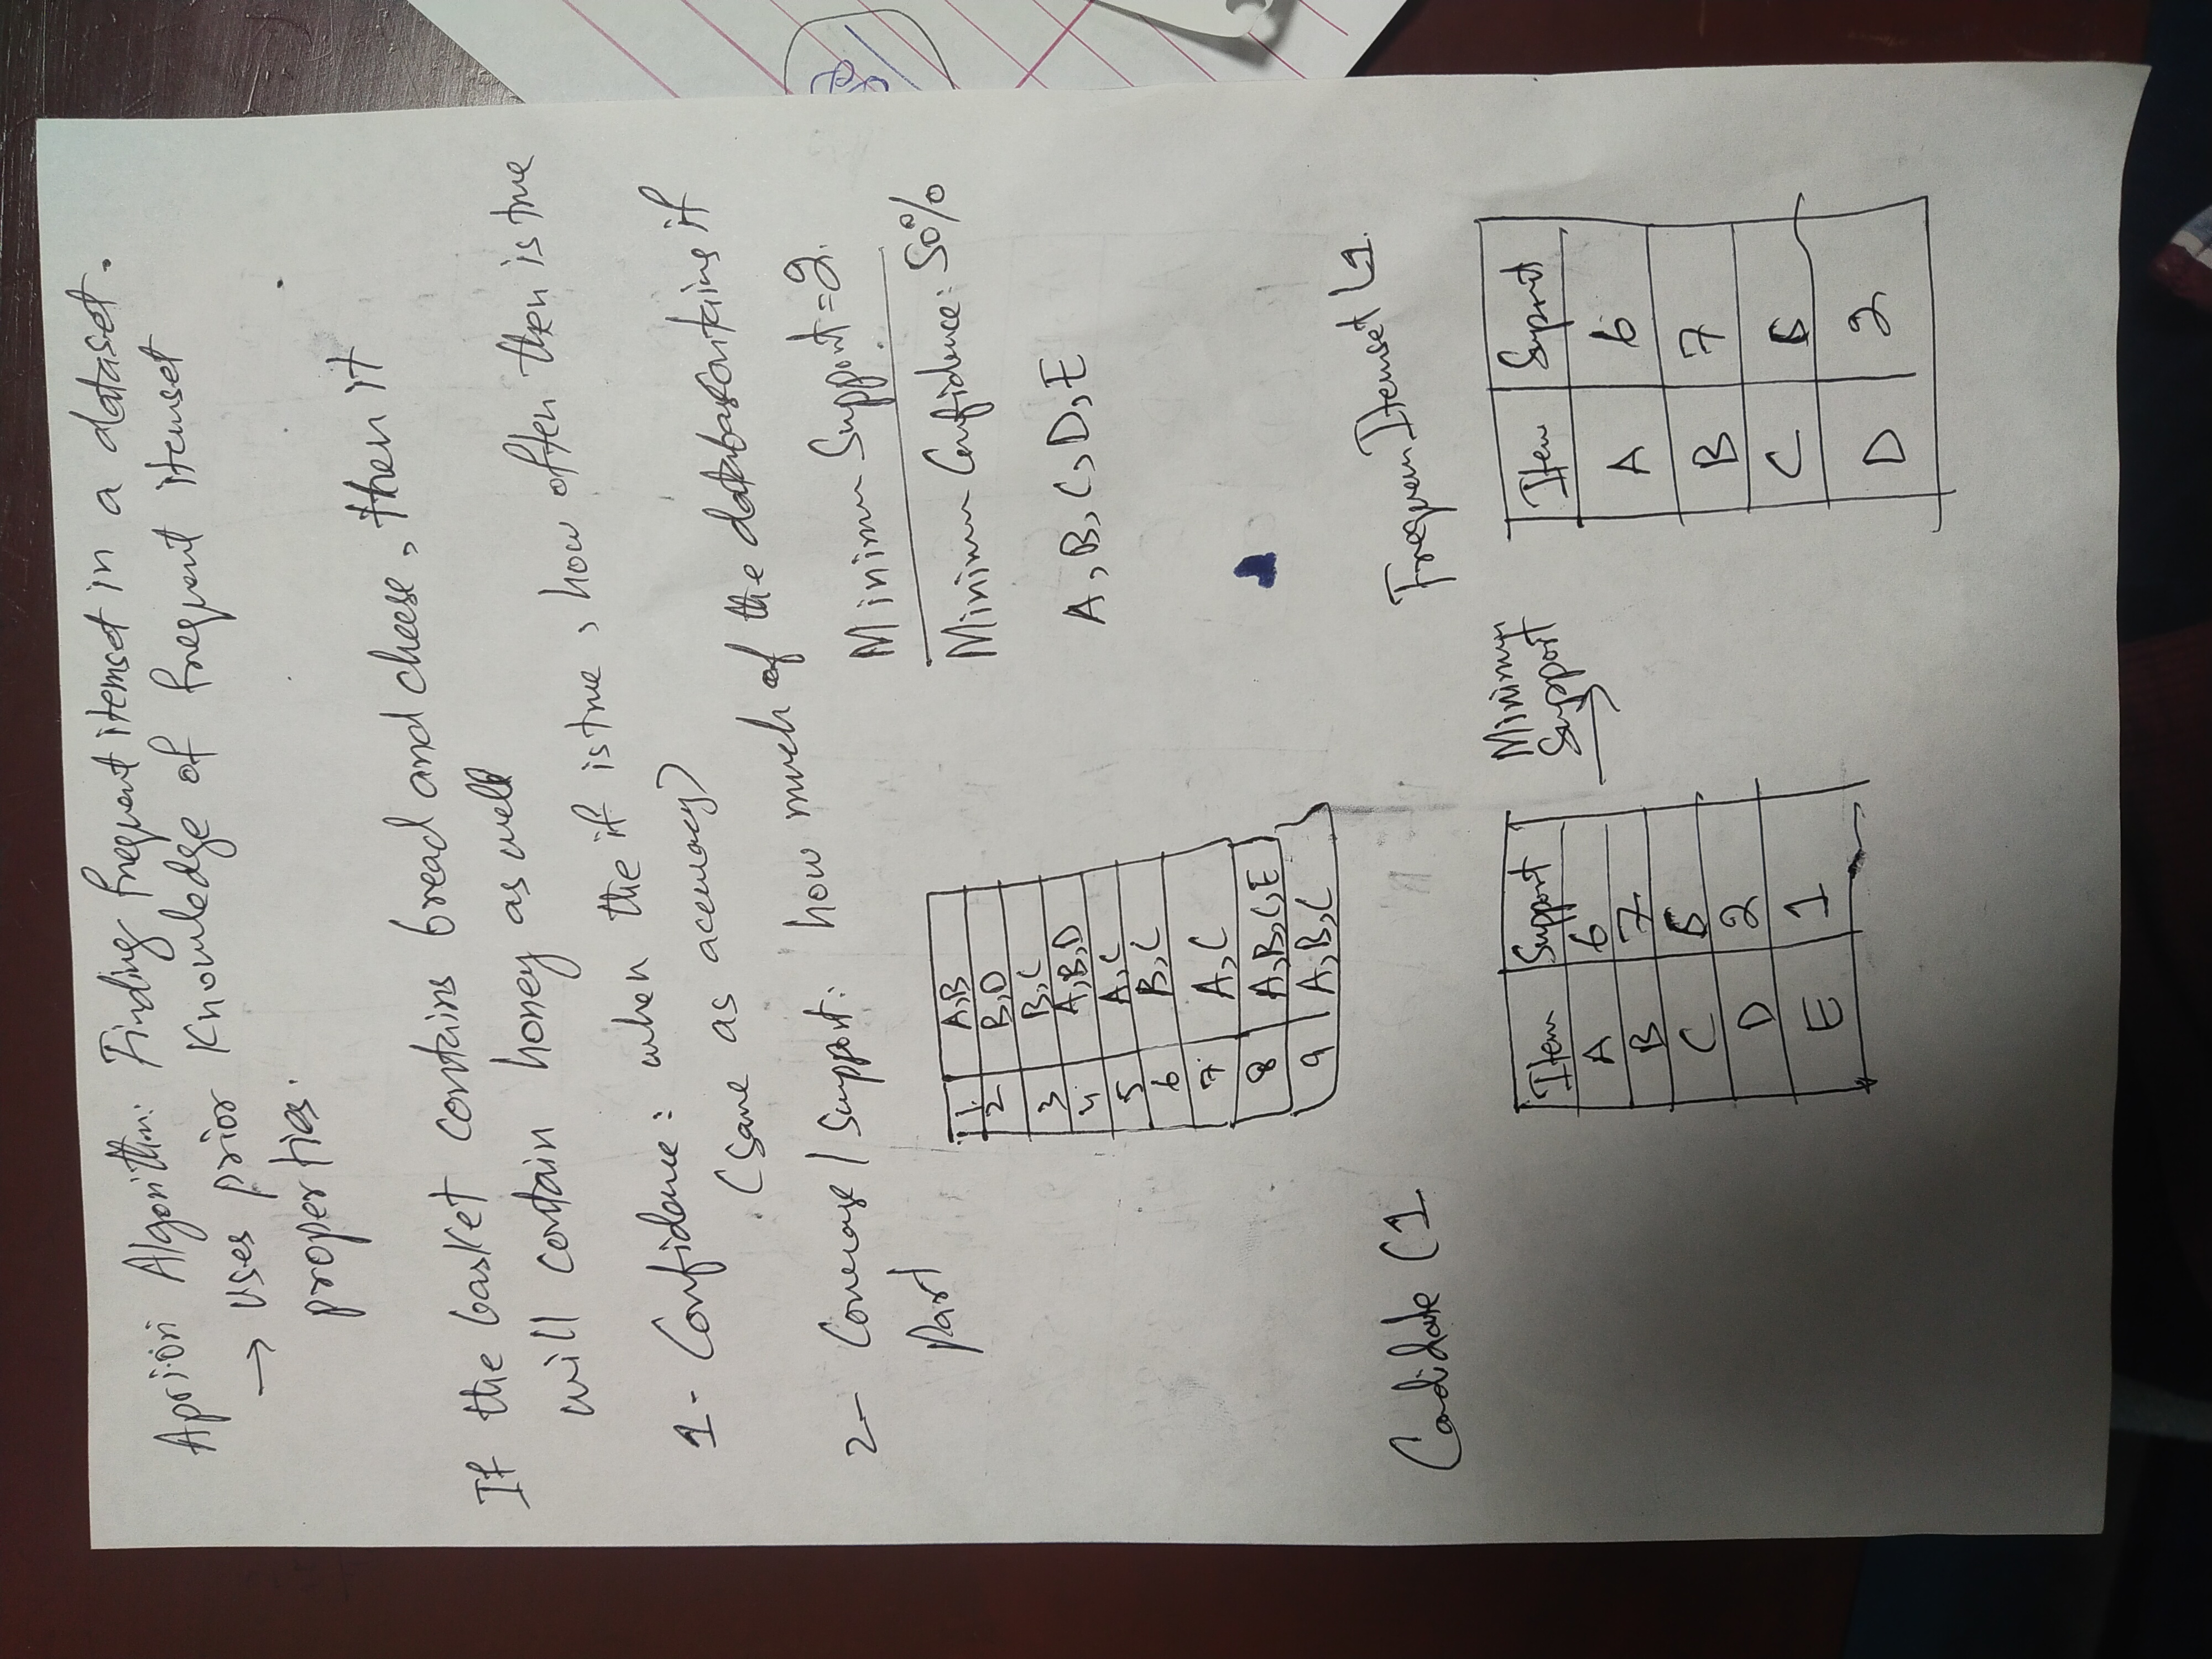 Apriori Algorithm: Finding frequent itemset in a dataset.
→ Uses prior Knowledge of frequent itemset
properties.
If the basket contains bread and cheese, then it
will contain honey as well
1- Confidence: when the if is true, how often then is true
(same as accuracy)
2- Coverage / Support: how much of the database contains if
part
Minimum Support = 2.
Minimum Confidence: 50%
1 A,B
2 B,D
3 B,C
4 A,B,D
5 A,C
6 B,C
7 A,C
8 A,B,C,E
9 A,B,C
A, B, C, D, E
Candidate C1
Frequen Itemset L1.
Item Support
A 6
B 7
C 6
D 2
E 1
Minimum
Support
→
Item Suprt
A 6
B 7
C 6
D 2